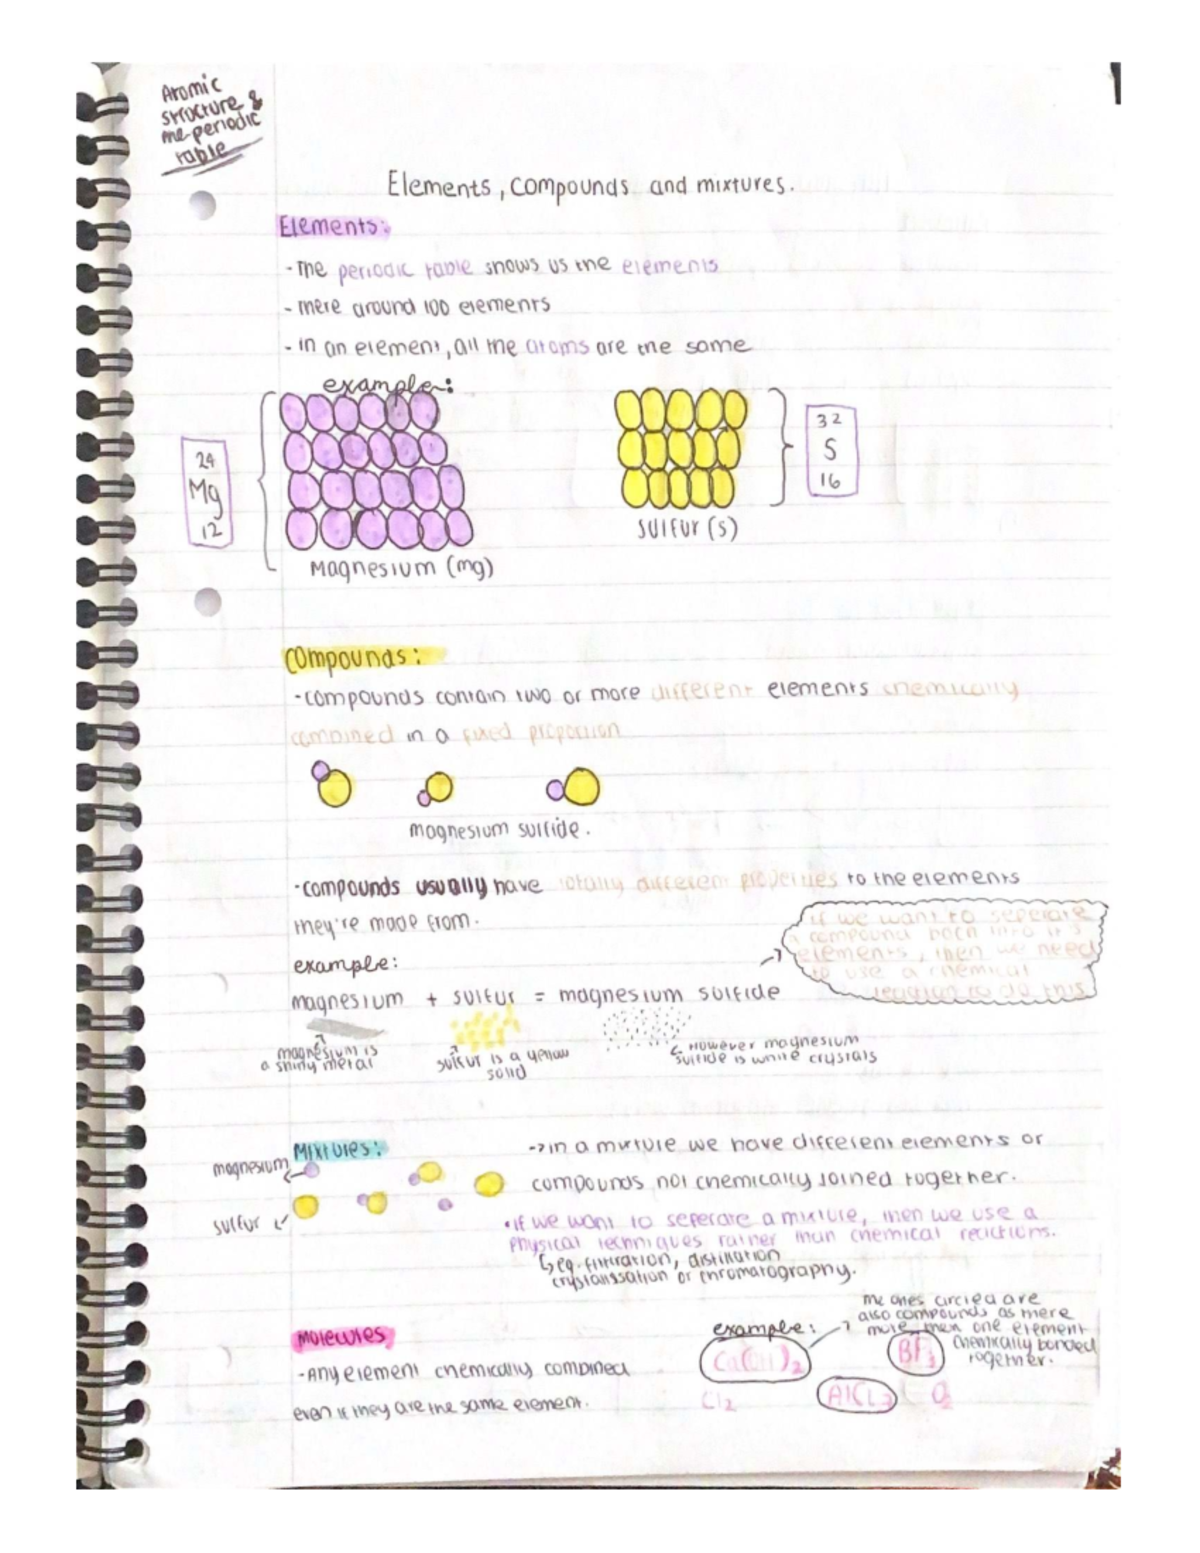 Atomic
structure &
the periodic
table
Elements, compounds and mixtures.
Elements:
- The periodic table shows us the elements
- there around 100 elements
- in an element, all the atoms are the same
example:
24
Mg
12
32
S
16
sulfur (s)
Magnesium (mg)
compounds:
- compounds contain two or more different elements chemically
combined in a fixed proportion
magnesium sulfide.
- compounds usually have totally different properties to the elements
they're made from.
if we want to seperate
a compound back into it's
elements, then we need
to use a chemical
reaction to do this
example:
magnesium + sulfur = magnesium sulfide
magnesium is
a shiny metal
sulfur is a yellow
solid
However magnesium
sulfide is white crystals
Mixtures:
magnesium
sulfur
-> in a mixture we have different elements or
compounds not chemically joined together.
• if we want to seperate a mixture, then we use a
physical techniques rather than chemical reactions.
↳ eg. filtration, distillation
crystalissation or chromatography.
Molecules
- Any element chemically combined
even if they are the same element.
example:
the ones circled are
also compounds as there
more then one element
chemically bonded
together.
Ca(OH)2
BF3
Cl2
AlCl3
O2